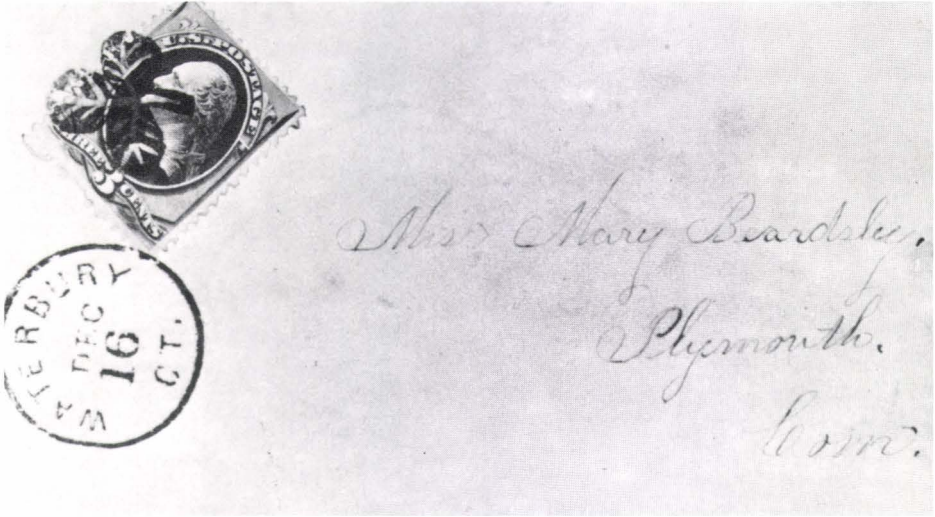 U.S. POSTAGE
WATERBURY
DEC
16
CT.
Miss Mary Beardsley.
Plymouth.
Conn.